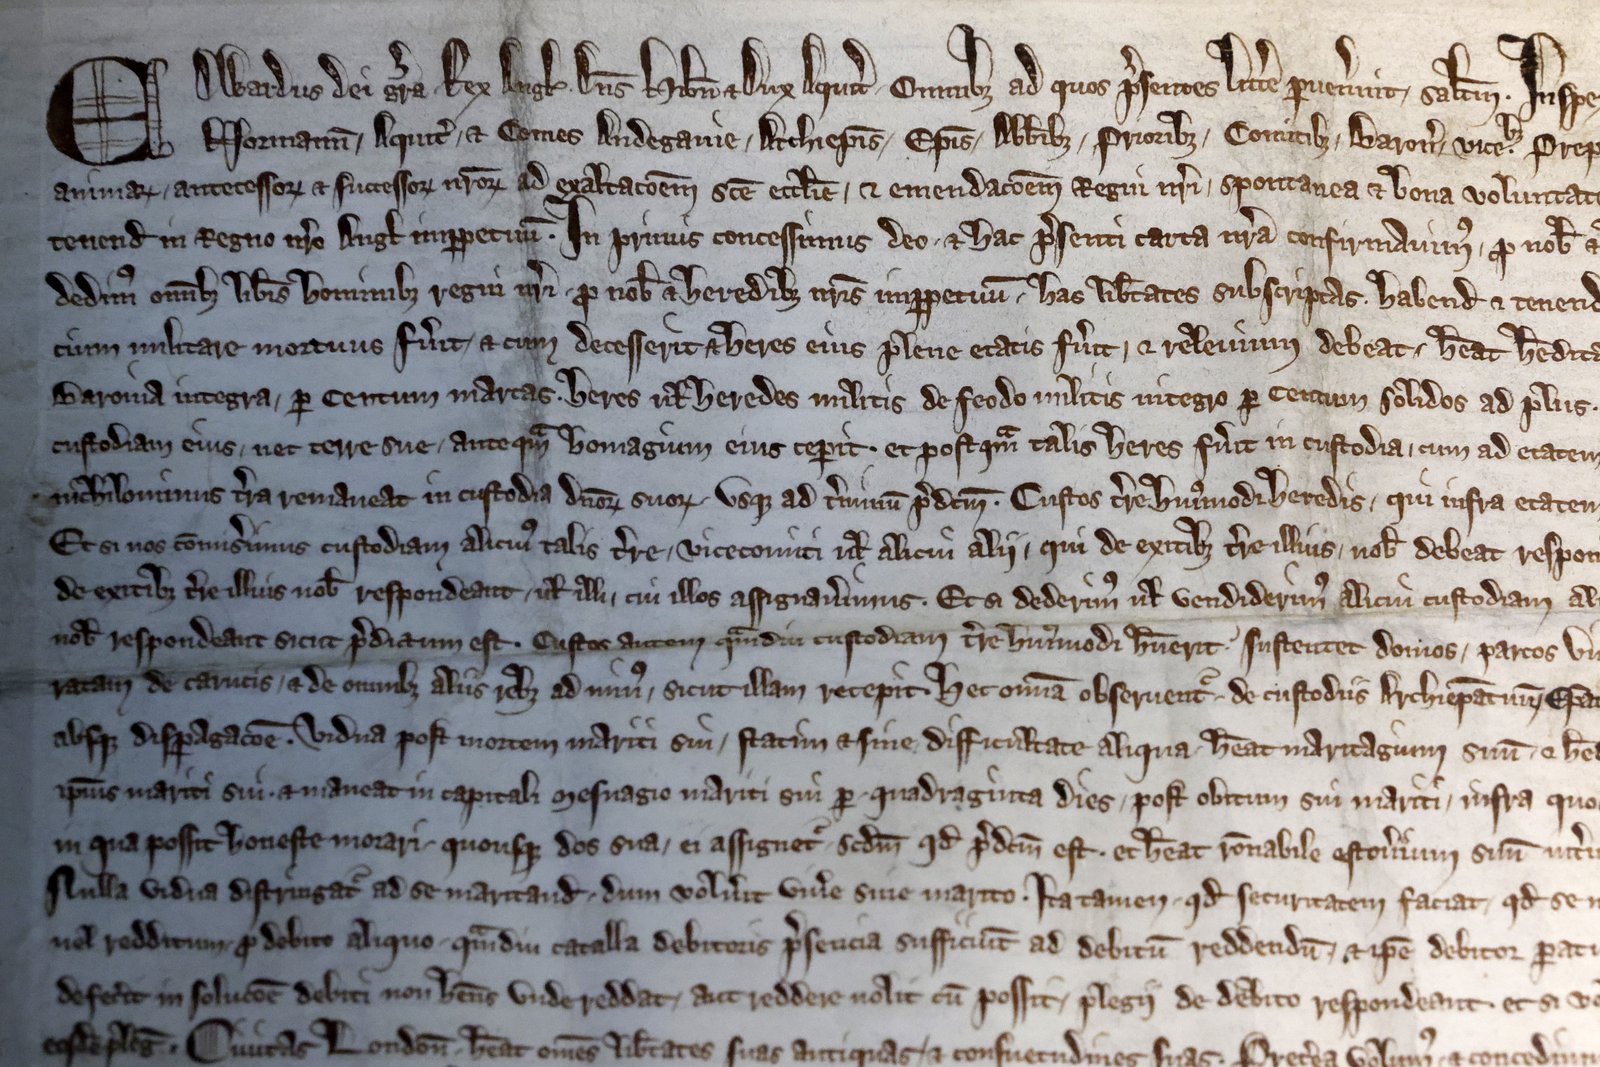 Edwardus dei gr̄a Rex Angl Dn̄s Hib̄n & Dux Aquit̄ Omnibȝ ad quos p̄sentes litt̄e p̱uen̄int, salt̄m. Inspe
Normann̄, Aquit̄, & Comes Andegauie, Archiep̄is, Ep̄is, Abb̄ibȝ, Prioribȝ, Comitibȝ, Baron̄, vicec Prep
animaꝝ, antecessoꝝ & successoꝝ nr̄oꝝ ad exaltac̄oem̄ sc̄e eccl̄ie, & emendac̄oem̄ Regni nr̄i, spontanea & bona voluntate
tenend̄ in Regno nr̄o Angl imp̱petuū. In primis concessimus deo & hac p̄senti carta nr̄a confirmauimꝰ, ꝓ nob̄ &
dedimꝰ omībȝ lib̄is hominibȝ regni nr̄i ꝓ nob̄ & heredibȝ nr̄is imp̱petuū, has lib̄tates subscriptas. habend̄ & tenend
cium militare mortuus fu̅it, & cum decesserit & heres eius plene etatis fu̅it, & releuium debeat, h̄eat h̄edita
Baronia integra, ꝑ Centum marcas. heres ul̄ heredes militis de feodo militis integro ꝑ Centum solidos ad plus.
custodiam eius, nec terre sue, anteqm̄ homagium eius cep̱it. et postqm̄ talis heres fu̅it in custodia, cum ad etatem
nichilominus t̄ra remaneat in custodia dn̄oꝝ suoꝝ, vsqȝ ad t̄minū p̄dc̄m̄. Custos t̄re hui̅ꝰmodi heredis, qui infra etatem
Et si nos com̄is̄imus custodiam alicuiꝰ talis t̄re, vicecomiti ul̄ alicui alij, qui de exitibȝ t̄re illius, nob̄ debeat respon
de exitibȝ t̄re illius nob̄ respondeant, ul̄ illi, cui illos assignau̅imus. Et si dederimꝰ ul̄ vendiderimꝰ alicui custodiam ali
nob̄ respondeant sicut p̄dictum est. Custos autem qm̄diu custodiam t̄re hui̅ꝰmodi h̄uerit, sustentet domos, parcos vi
ratam de carucis, & de omnibȝ aliis rebȝ ad minꝰ, sicut illam recepit. Hec om̄ia obseruent̄ de custodiis Archiep̄atuum, Ep̄at
absqȝ disp̱agac̄oe. Vidua post mortem mariti sui, statim & sine difficultate aliqua h̄eat maritagium suū, & h̄e
ip̄ius mariti sui. & maneat in capitali mesuagio mariti sui ꝑ quadraginta dies, post obitum sui mariti, infra quo
in qua possit honeste morari, quousqȝ dos sua, ei assignet̄ scd̄m̄ qd̄ p̄dc̄m̄ est. et h̄eat ron̄abile estou̅ium suū int̄i
Nulla vidua distringat̄ ad se maritand̄, dum volu̅it viu̅e sine marito. Ita tamen qd̄ securitatem faciat, qd̄ se n
uel redditum, ꝓ debito aliquo, qm̄diu catalla debitoris p̄sencia sufficiūt ad debitū reddendū, & ip̄e debitor ꝑati
defec̄it in soluc̄oe debiti non h̄ens vnde reddat, aut reddere nolit cū possit, plegij de debito respondeant. et si vo
Ciuitas London̄ h̄eat om̄es lib̄tates suas antiquas, & consuetudines suas. Preter̄a volumꝰ & concedim